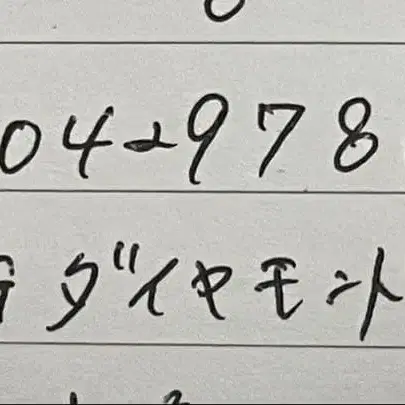 04-978
ダイヤモント